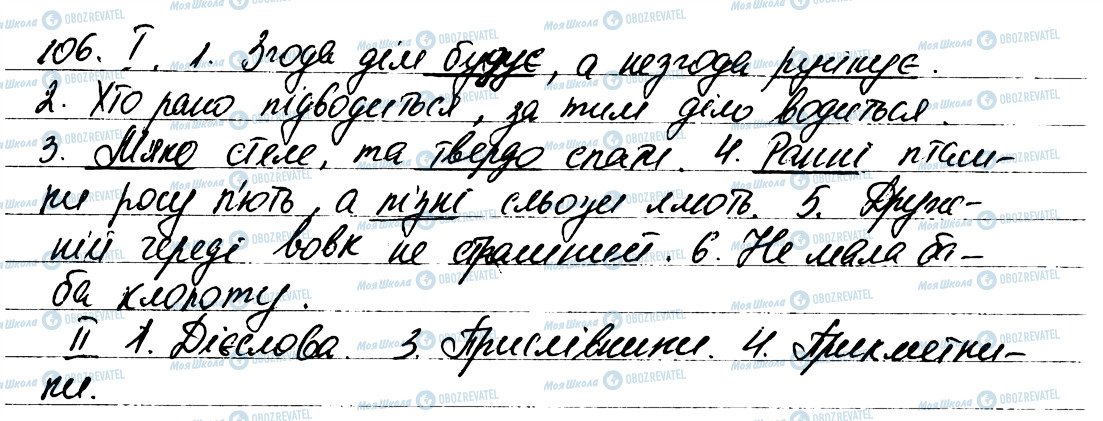 106. I. 1. Згода дім будує, а незгода руйнує.
2. Хто рано підводиться, за тим діло водиться.
3. М'яко стеле, та твердо спати. 4. Ранні пташ-
ки росу п'ють, а пізні сльози ллють. 5. Друж-
ній череді вовк не страшний. 6. Не мала ба-
ба клопоту.
II 1. Дієслова. 3. Прислівники. 4. Прикметни-
ки.